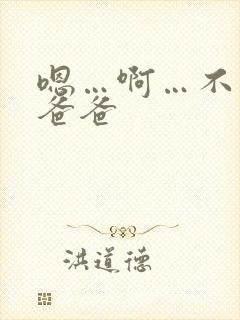 嗯…啊…不
爸爸
洪道德